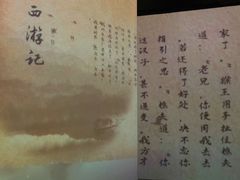 西游記
家了。猴王用手扯住樵夫
道：老兄，你便同我去去
若还得了好处，决不忘你
指引之恩。樵夫道：你
这汉子，甚不通变。我方才